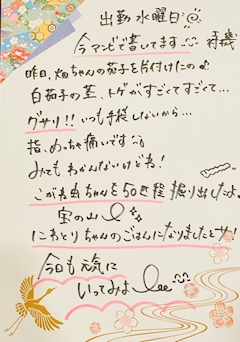 出勤水曜日
今マンビで書いてます
昨日、畑ちゃんの茄子を片付けたの♪
白茄子の茎、トゲがすごくてすごくて…
グサリ!!いつも手袋しないから…
指、めっちゃ痛いです
みてもわかんないけどね!
こがね虫ちゃんを50匹程掘り出したよ。
宝の山
にわとりちゃんのごはんになりましたとサ!
今日も元気に
いってみよー